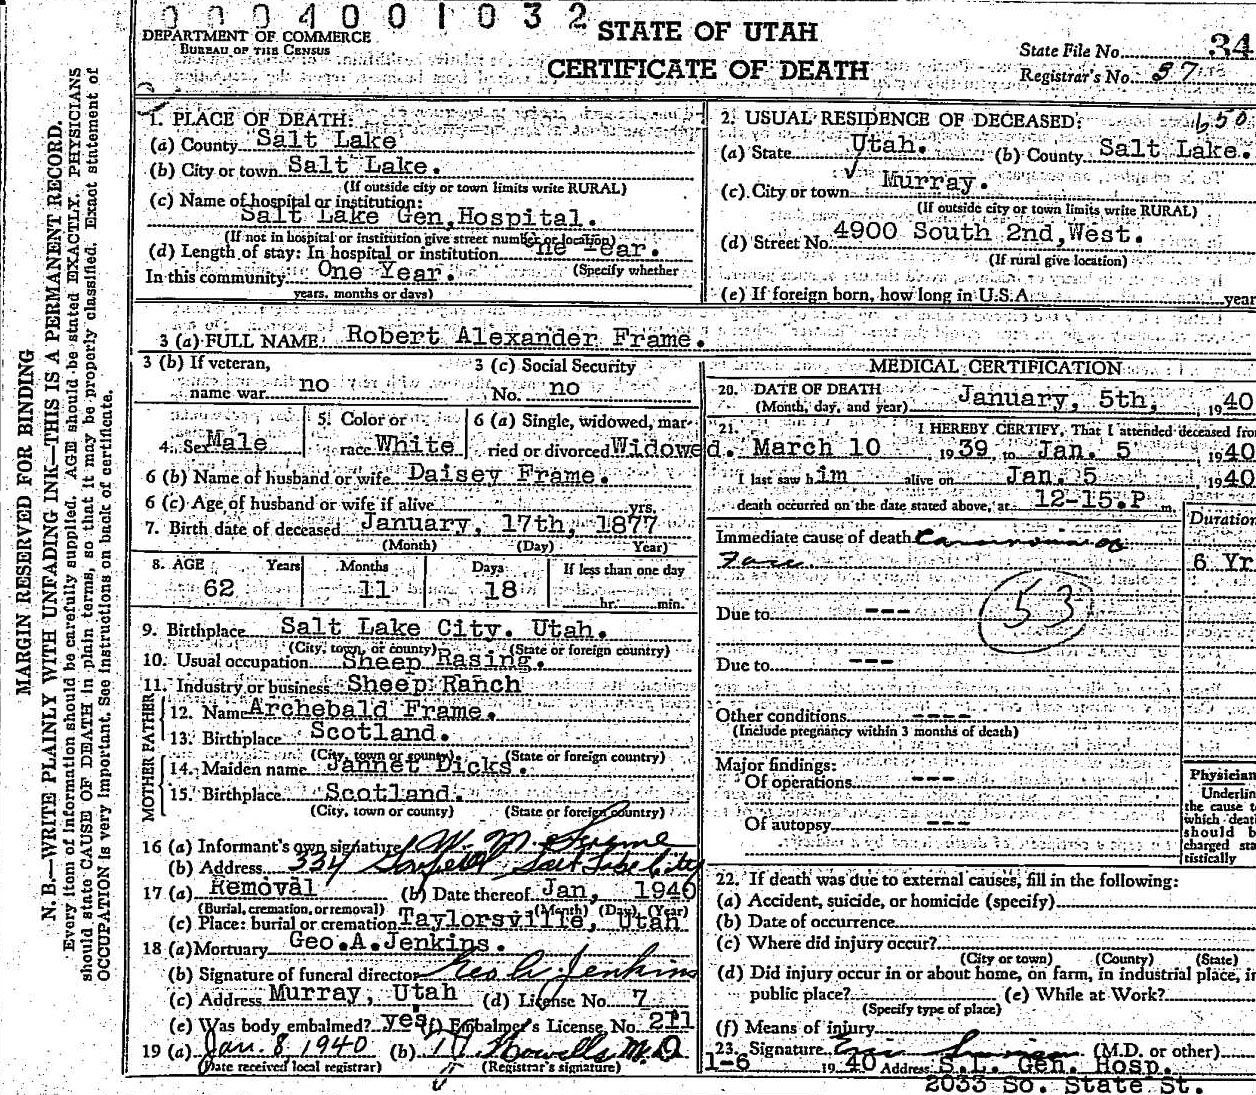 0004001032
DEPARTMENT OF COMMERCE
BUREAU OF THE CENSUS
STATE OF UTAH
CERTIFICATE OF DEATH
State File No. 34
Registrar's No. 37
MARGIN RESERVED FOR BINDING
N. B.—WRITE PLAINLY WITH UNFADING INK—THIS IS A PERMANENT RECORD.
Every item of information should be carefully supplied. AGE should be stated EXACTLY. PHYSICIANS
should state CAUSE OF DEATH in plain terms, so that it may be properly classified. Exact statement of
OCCUPATION is very important. See instructions on back of certificate.
1. PLACE OF DEATH:
(a) County Salt Lake
(b) City or town Salt Lake.
(If outside city or town limits write RURAL)
(c) Name of hospital or institution:
Salt Lake Gen, Hospital.
(If not in hospital or institution give street number or location)
(d) Length of stay: In hospital or institution ne Year.
(Specify whether
In this community One Year.
years, months or days)
2. USUAL RESIDENCE OF DECEASED: 650
(a) State Utah. (b) County Salt Lake.
(c) City or town Murray.
(If outside city or town limits write RURAL)
(d) Street No. 4900 South 2nd, West.
(If rural give location)
(e) If foreign born, how long in U.S.A. year
3 (a) FULL NAME: Robert Alexander Frame.
3 (b) If veteran, name war no
3 (c) Social Security No. no
4. Sex Male
5. Color or race White
6 (a) Single, widowed, married or divorced Widowed.
6 (b) Name of husband or wife Daisey Frame.
6 (c) Age of husband or wife if alive yrs.
7. Birth date of deceased January, 17th, 1877
(Month) (Day) Year)
8. AGE Years Months Days If less than one day
62 11 18 hr. min.
9. Birthplace Salt Lake City. Utah.
(City, town, or county) (State or foreign country)
10. Usual occupation Sheep Rasing.
11. Industry or business Sheep Ranch
FATHER
12. Name Archebald Frame.
13. Birthplace Scotland.
(City, town or county) (State or foreign country)
MOTHER
14. Maiden name Jannet Dicks.
15. Birthplace Scotland.
(City, town or county) (State or foreign country)
16 (a) Informant's own signature W. M. Frame
(b) Address 334 Garfield Salt Lake City
17 (a) Removal (b) Date thereof Jan, 1940
(Burial, cremation, or removal) (Month) (Day) (Year)
(c) Place: burial or cremation Taylorsville, Utah
18 (a) Mortuary Geo.A.Jenkins.
(b) Signature of funeral director Geo A Jenkins
(c) Address Murray, Utah (d) License No. 7
(e) Was body embalmed? yes (f) Embalmer's License No. 211
19 (a) Jan. 8, 1940 (b) Howells M.D
(Date received local registrar) (Registrar's signature)
MEDICAL CERTIFICATION
20. DATE OF DEATH
(Month, day, and year) January, 5th, , 1940
21. I HEREBY CERTIFY, That I attended deceased fro
March 10 1939, to Jan. 5 , 1940
I last saw him alive on Jan. 5 , 1940
death occurred on the date stated above, at 12-15.P m.
Duration
Immediate cause of death Carcinoma of
Face 6 Yr
Due to ---
53
Due to ---
Other conditions ----
(Include pregnancy within 3 months of death)
Major findings:
Of operations ---
Of autopsy ---
Physician
Underlin
the cause t
which deat
should b
charged sta
tistically
22. If death was due to external causes, fill in the following:
(a) Accident, suicide, or homicide (specify)
(b) Date of occurrence
(c) Where did injury occur?
(City or town) (County) (State)
(d) Did injury occur in or about home, on farm, in industrial place, in
public place? (e) While at Work?
(Specify type of place)
(f) Means of injury
23. Signature (M.D. or other)
1-6 1940 Address S.L. Gen. Hosp.
2033 So. State St.